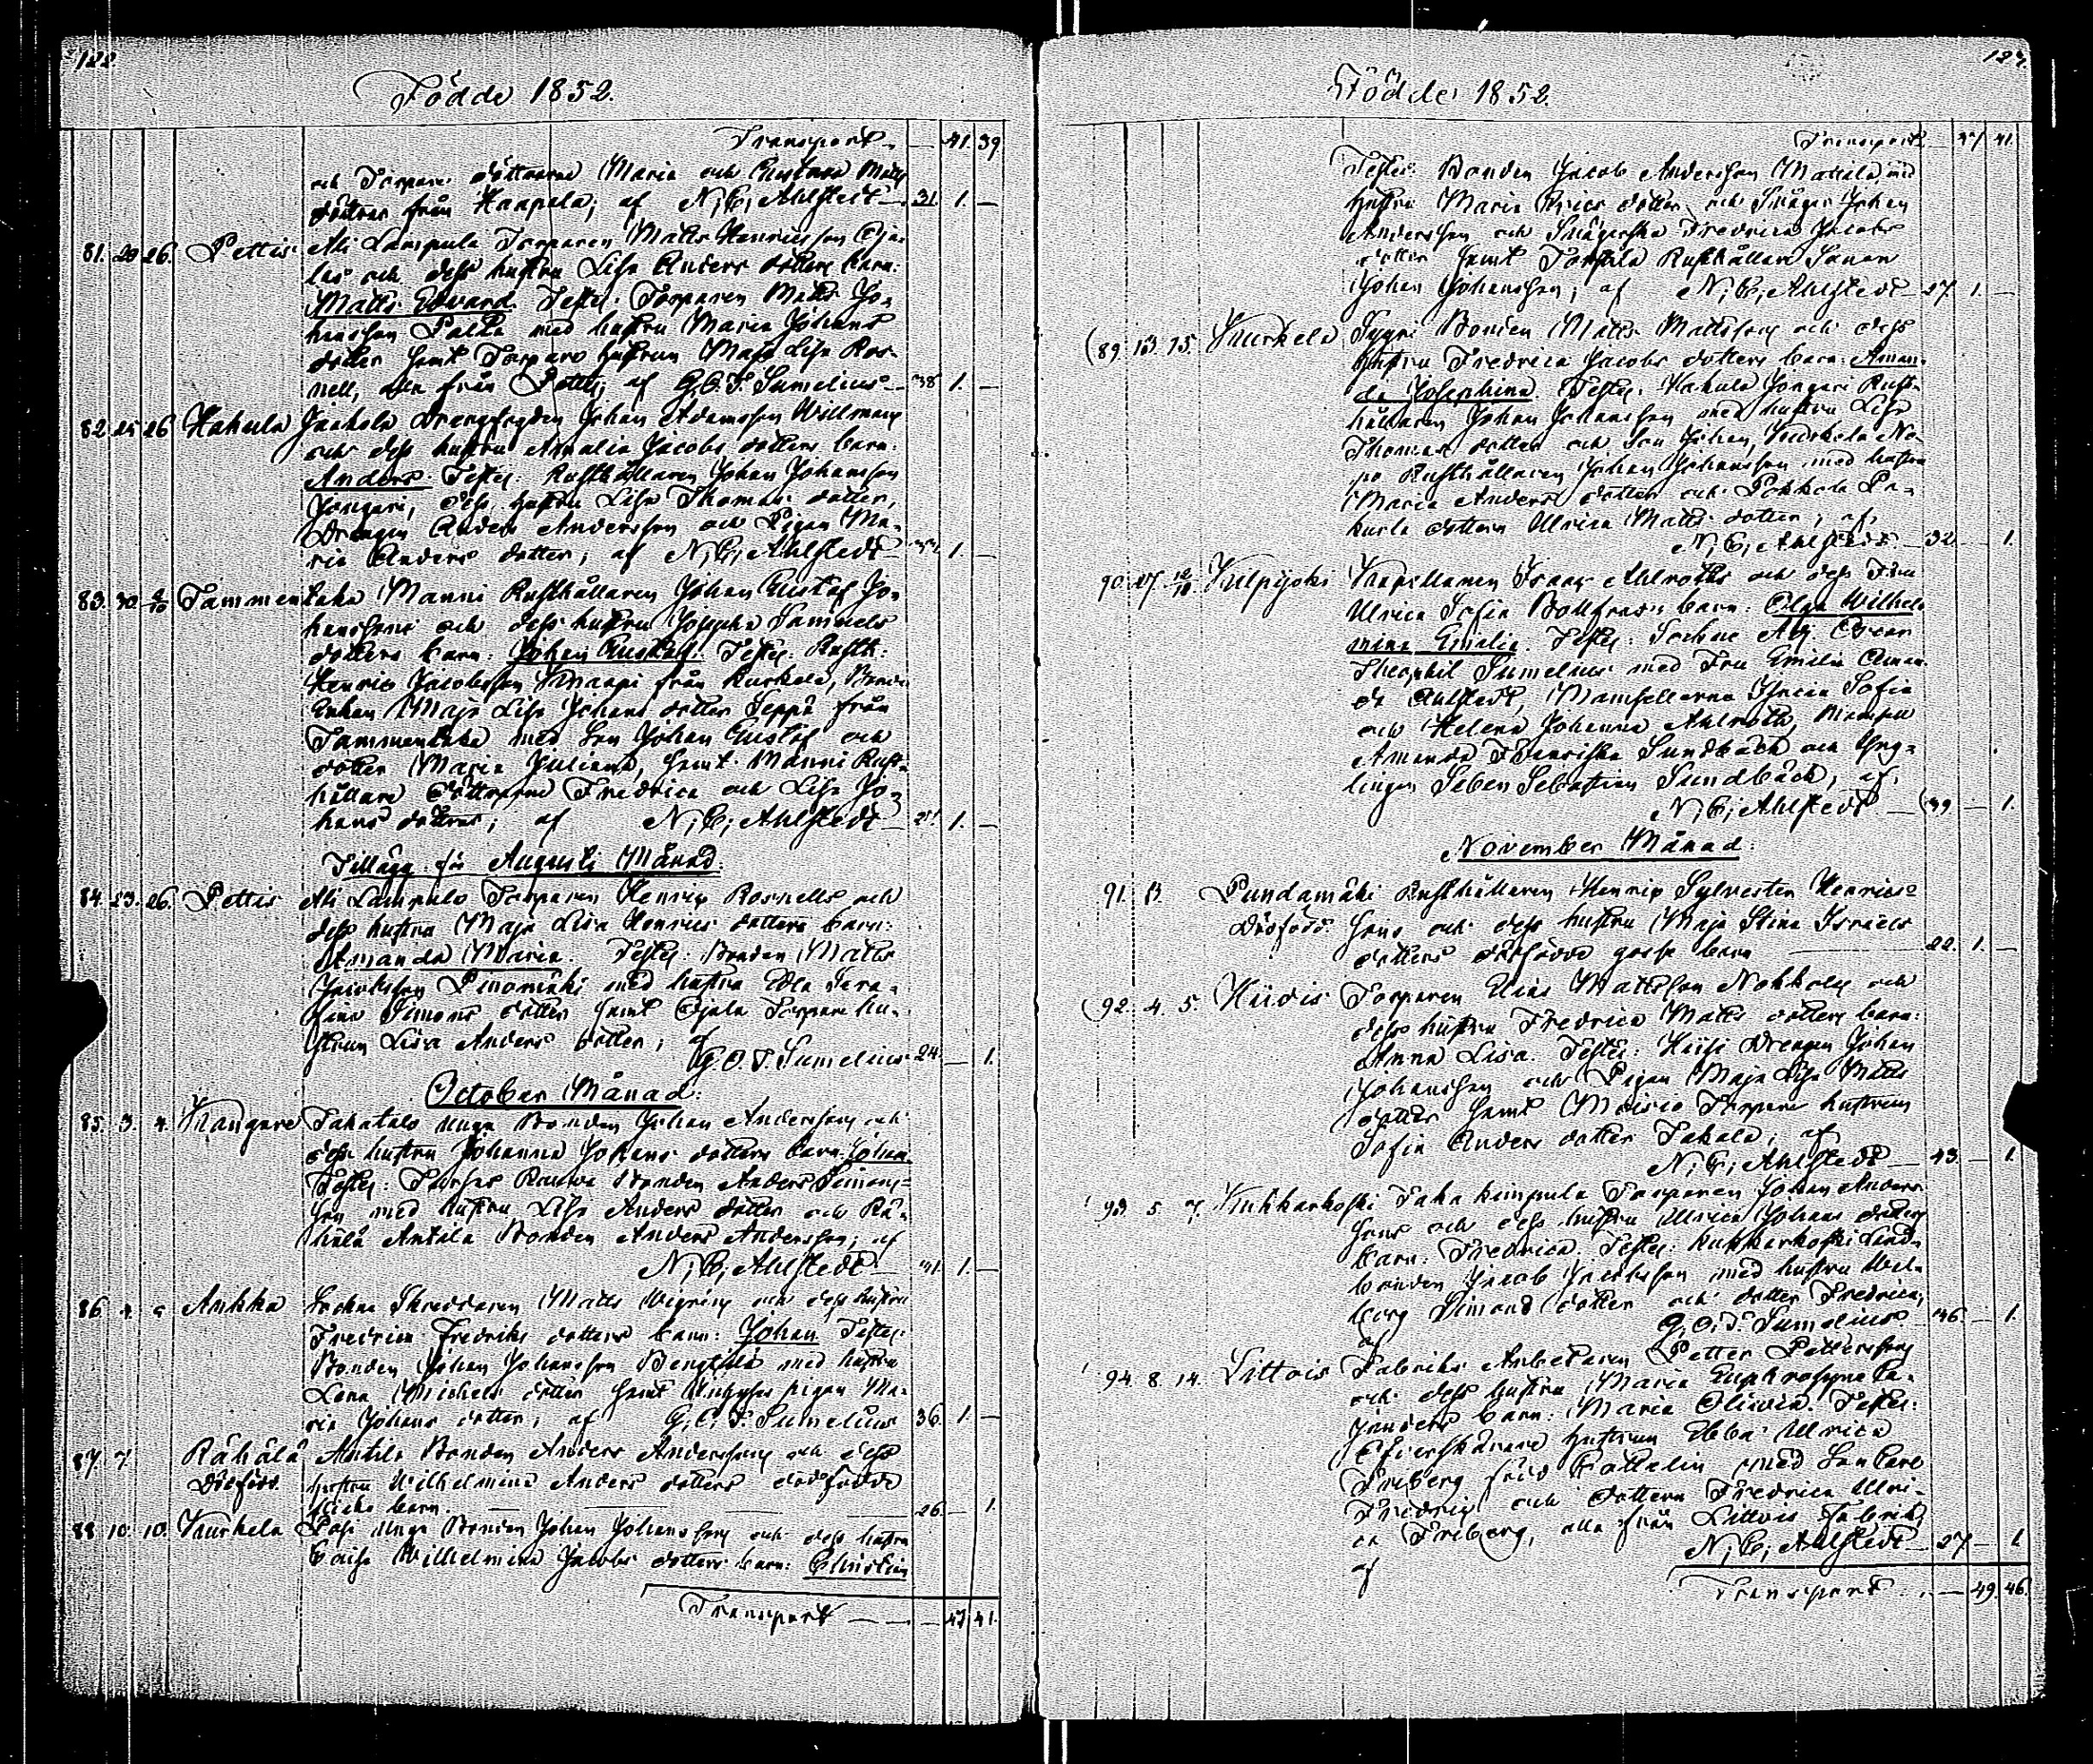 122
Födde 1852.
Transport — 41. 39.
och Torpare döttrarne Maria och Gustava Matts
döttrar från Haapala; af N; C; Ahlstedt — 31. 1. —
81. 20 26. Pettis Ali Lampula Torparen Matts Henricsson Oja-
las och dess hustru Lisa Anders dotters barn:
Matts Edvard. Testes: Torparen Matts Jo-
hansson Palka med hustru Maria Johans
dotter samt Torpare hustrun Maja Lisa Ros-
nell, alla från Pettis; af G. O. T. Sumelius — 38 1. —
82. 25 26 Hakula Jaakola Drengfogden Johan Adamsson Willmans
och dess hustru Amalia Jacobs dotters barn:
Anders. Testes: Rusthållaren Johan Johansson
Jongari, dess hustru Lisa Thomas dotter,
Drengen Anders Andersson och Pigan Ma-
ria Anders dotter; af N; C; Ahlstedt — 1. —
83. 30. 2/10 Tammentaka Manni Rusthållaren Johan Gustaf Jo-
hanssons och dess hustru Josepha Samuels
dotters barn: Johan Gustaf. Testes: Rusth:
Henric Jacobsson Knaapi från Kurkela, Bonde
Enkan Maja Lisa Johans dotter Seppä från
Tammentaka med Son Johan Gustaf och
dotter Maria Juliana, samt Manni Rust-
hållare döttrarne Fredrica och Lisa Jo-
hans döttrar; af N; C; Ahlstedt — 1. —
Tillägg för Augusti Månad.
84. 23. 26. Pettis Ali Lampula Torparen Henric Rosnells och
dess hustru Maja Lisa Henrics dotters barn:
Amanda Maria. Testes: Bonden Matts
Jacobsson Pinomäki med hustru Edla Sera-
fina Simons dotter samt Ojala Torpare hu-
strun Lisa Anders dotter; af
G. O. T. Sumelius 24. — 1.
October Månad:
85. 3. 4. Kangare Takatalo unga Bonden Johan Anderssons och
dess hustru Johanna Johans dotters barn: Johan.
Testes: Bonden Anders Simons-
son med hustru Lisa Anders dotter och Rä-
hälä Antila Bonden Anders Andersson; af
N; C; Ahlstedt — 1. —
86 4. 5 Aukka Sockne Skreddaren Matts och dess hustru
Fredrica Fredriks dotters barn: Johan. Testes:
Bonden Johan Johansson Bengtilä med hustru
Lena Michels dotter samt pigan Ma-
ria Johans dotter; af G. O. T. Sumelius 36. 1. —
87. 7 Rähälä Antila Bonden Anders Anderssons och dess
Dödfödd. hustru Wilhelmina Anders dotters dödfödde
flicko barn. — 26. — 1.
88 10. 10. Kurkela Pasi unga Bonden Johan Johanssons och dess hustru
Caisa Wilhelmina Jacobs dotters barn: Christian
Transport — 47 41.
123.
Födde 1852.
Transport — 47 41.
Testes: Bonden Jacob Andersson Mattila med
hustru Maria Erics dotter och Svåger Johan
Andersson och Svägerska Fredrica Jacobs
dotter samt Rusthållare Sonen
Johan Johansson; af N; C; Ahlstedt — 27. 1. —
89. 13. 15. Kurkela Bonden Matts Mattssons och dess
hustru Fredrica Jacobs dotters barn: Aman-
da Josephina. Testes: Hakula Jongari Rust-
hållaren Johan Johansson med hustru Lisa
Thomas dotter och Son Johan, Kurkela No-
Rusthållaren Johan Johansson med hustru
Maria Anders dotter och
dottern Ulrica Matts dotter; af
N; C; Ahlstedt — 32 — 1.
90. 27. Kulpijoki Kapellanen Frans Ahlroths och dess Fru
Ulrica Sofia barn: Olga Wilhel-
mina Emilia. Testes: Sockne Adj. Oscar
Theophil Sumelius med Fru Emilia Aman-
da Ahlstedt, Mamsellerna Sofia
och Helena Johanna Ahlroth, Mamsell
Amanda Sundbäck och Yng-
lingen Sebastian Sundbäck; af
N; C; Ahlstedt — 39. — 1.
November Månad:
91. Pundamäki Rusthållaren Henric Sylvester Henrics-
Dödfödd. sons och dess hustru Maja Stina Israels
dotters dödfödde gosse barn — 22. 1. —
92. 4. 5. Hiidis Torparen Elias Mattsson och
dess hustru Fredrica Matts dotters barn:
Anna Lisa. Testes: Drengen Johan
Johansson och Pigan Maja Lisa Matts
dotter samt Moisio Torpare hustrun
Sofia Anders dotter Takala; af
N; C; Ahlstedt — 43. — 1.
93. 5. 7. Kukkarkoski Taka Torparen Johan Anders-
sons och dess hustru Ulrica Johans dotters
barn: Fredrica. Testes: Kukkarkoski Land-
bonden Jacob Jacobsson med hustru Wal-
borg Simons dotter och dotter Fredrica;
af G. O. T. Sumelius 36. — 1.
94. 8. 14. Littois Fabriks Arbetaren Petter Petterssons
och dess hustru Maria Euphrosyne Ca-
janders barn: Maria Olivia. Testes:
hustrun Ebba Ulrica
Friberg född med Son Carl
Fredric och dottern Fredrica Ulri-
ca Friberg, alla från Littois Fabrik;
af N; C; Ahlstedt — 27 — 1
Transport — 49. 46.